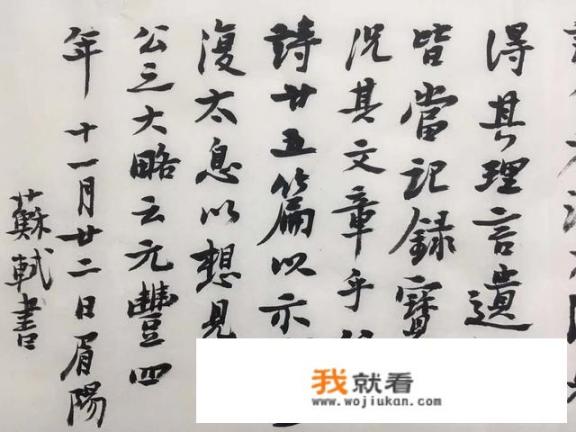 得其理言遺
皆當記錄寶
況其文章乎
詩廿五篇以示
復太息以想見
公三大略云元豐四
年十一月廿二日眉陽
蘇軾書
我就看
www.wojiukan.com